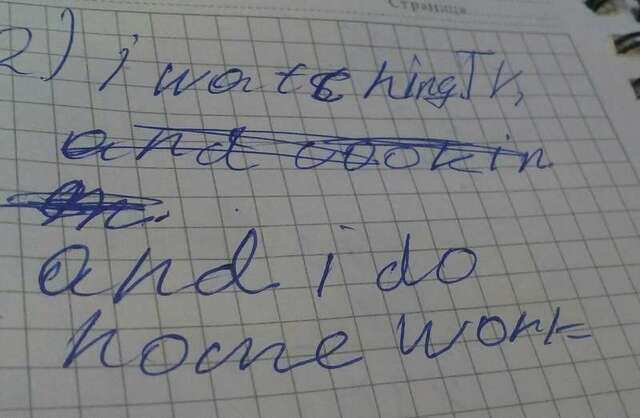 Страница
2) i watchingTV,
and cookin
and i do
home work